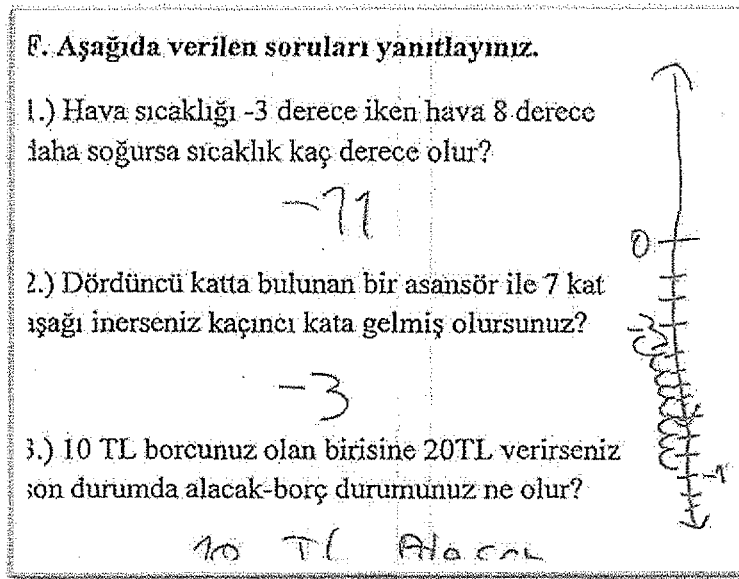 F. Aşağıda verilen soruları yanıtlayınız.
1.) Hava sıcaklığı -3 derece iken hava 8 derece
daha soğursa sıcaklık kaç derece olur?
-11
0
2.) Dördüncü katta bulunan bir asansör ile 7 kat
aşağı inerseniz kaçıncı kata gelmiş olursunuz?
-3
3.) 10 TL borcunuz olan birisine 20TL verirseniz
son durumda alacak-borç durumunuz ne olur?
10 TL Alacak